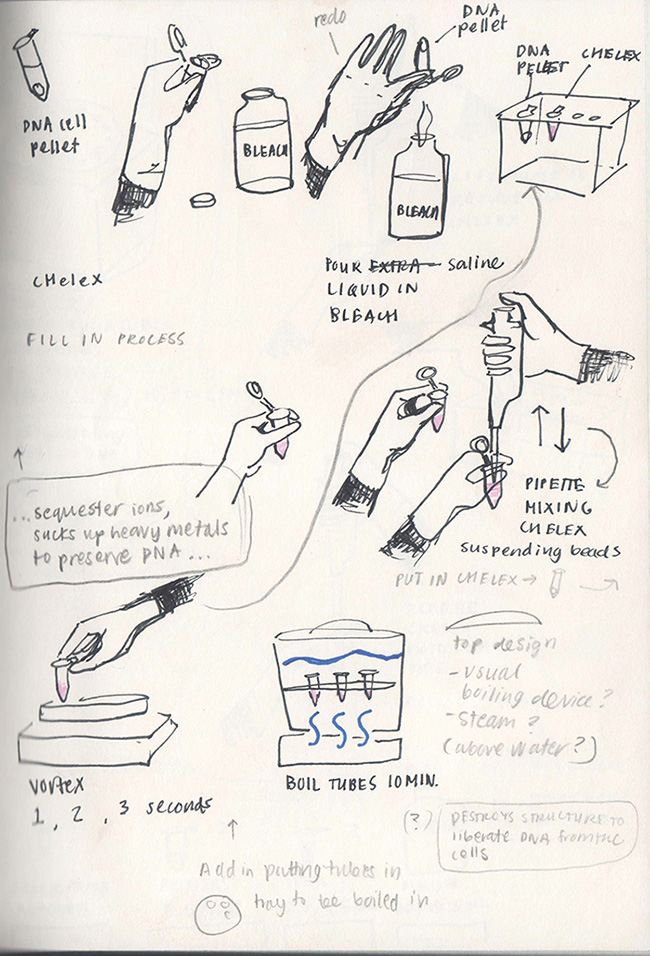 redo
DNA
pellet
DNA
PELLET
CHELEX
DNA cell
pellet
BLEACH
BLEACH
CHeleX
POUR EXTRA saline
LIQUID IN
BLEACH
FILL IN PROCESS
...sequester ions,
sucks up heavy metals
to preserve DNA...
PIPETTE
MIXING
CHELEX
suspending beads
PUT IN CHELEX →
top design
- visual
boiling device?
- Steam?
(above water?)
VORTEX
1, 2, 3 seconds
BOIL TUBES 10 MIN.
(?)
DESTROYS STRUCTURE TO
liberate DNA from the
cells
Add in putting tubes in
tray to be boiled in